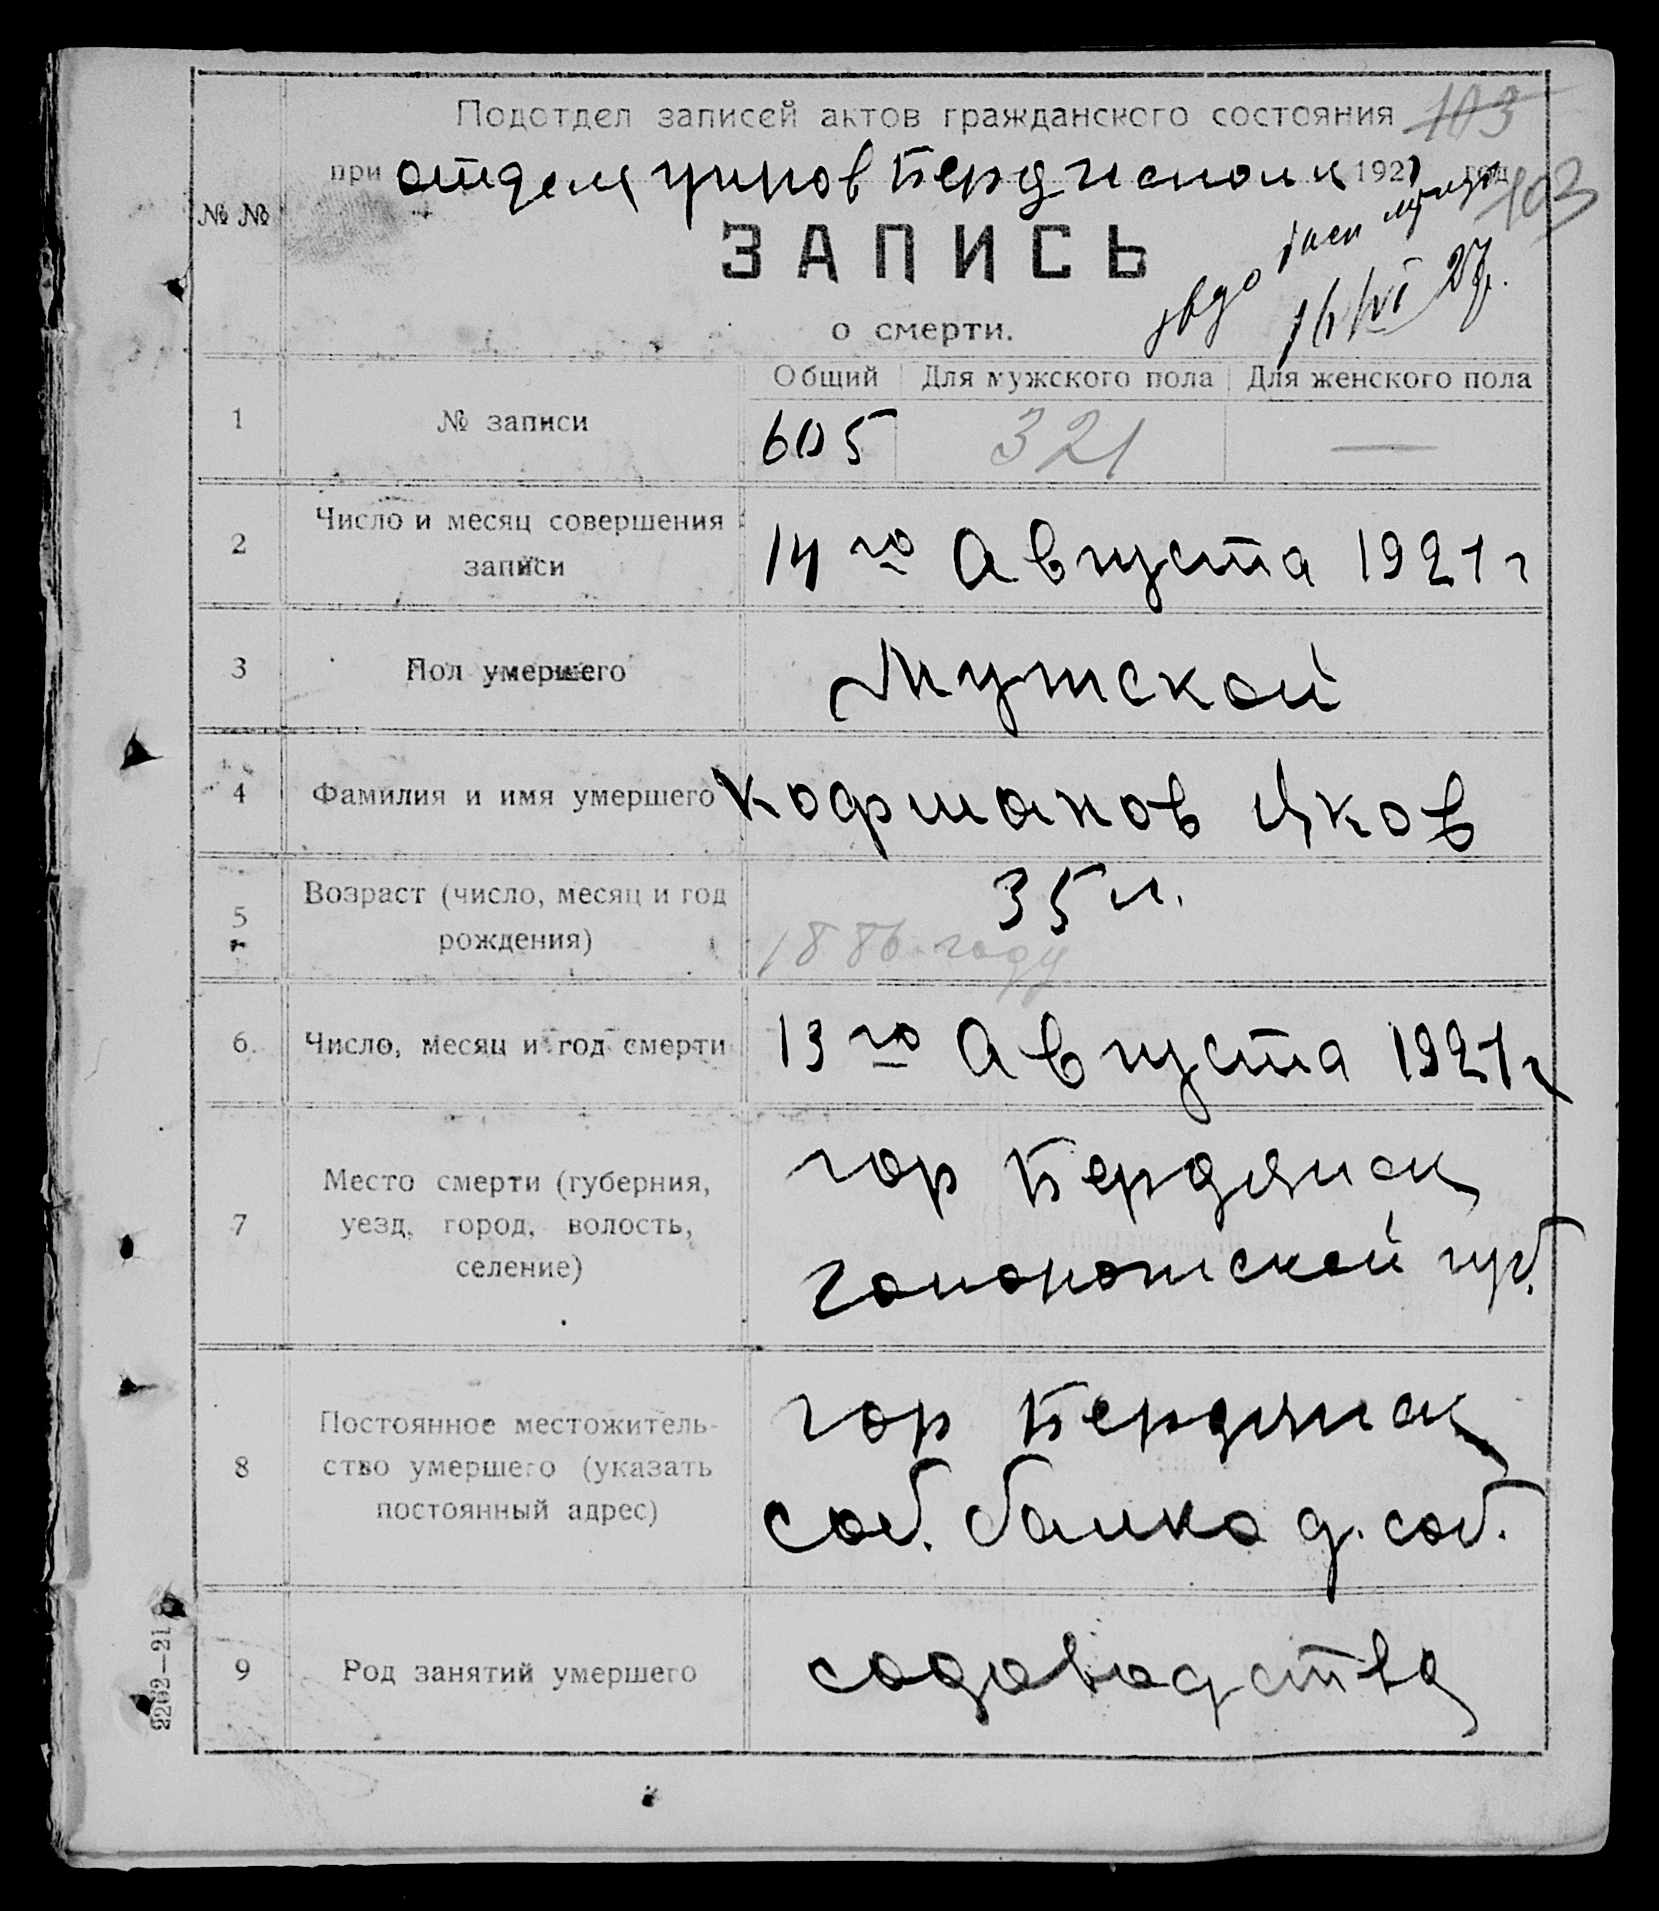 Подотдел записей актов гражданского состояния 103
при отделе управ Бердисполк 1921 год
103
№ №
ЗАПИСЬ
о смерти.
Общий Для мужского пола Для женского пола
1 № записи 605 321 —
2 Число и месяц совершения записи 14го Августа 1921 г
3 Пол умершего Мужской
4 Фамилия и имя умершего Кофманов Яков
5 Возраст (число, месяц и год рождения) 35 л.
1886 году
6. Число, месяц и год смерти 13го Августа 1921 г
7 Место смерти (губерния, уезд, город, волость, селение) гор Бердянск
Запорожской губ.
8 Постоянное местожительство умершего (указать постоянный адрес) гор Бердянск
соб. балка д. соб.
9 Род занятий умершего садоводство
2262—21